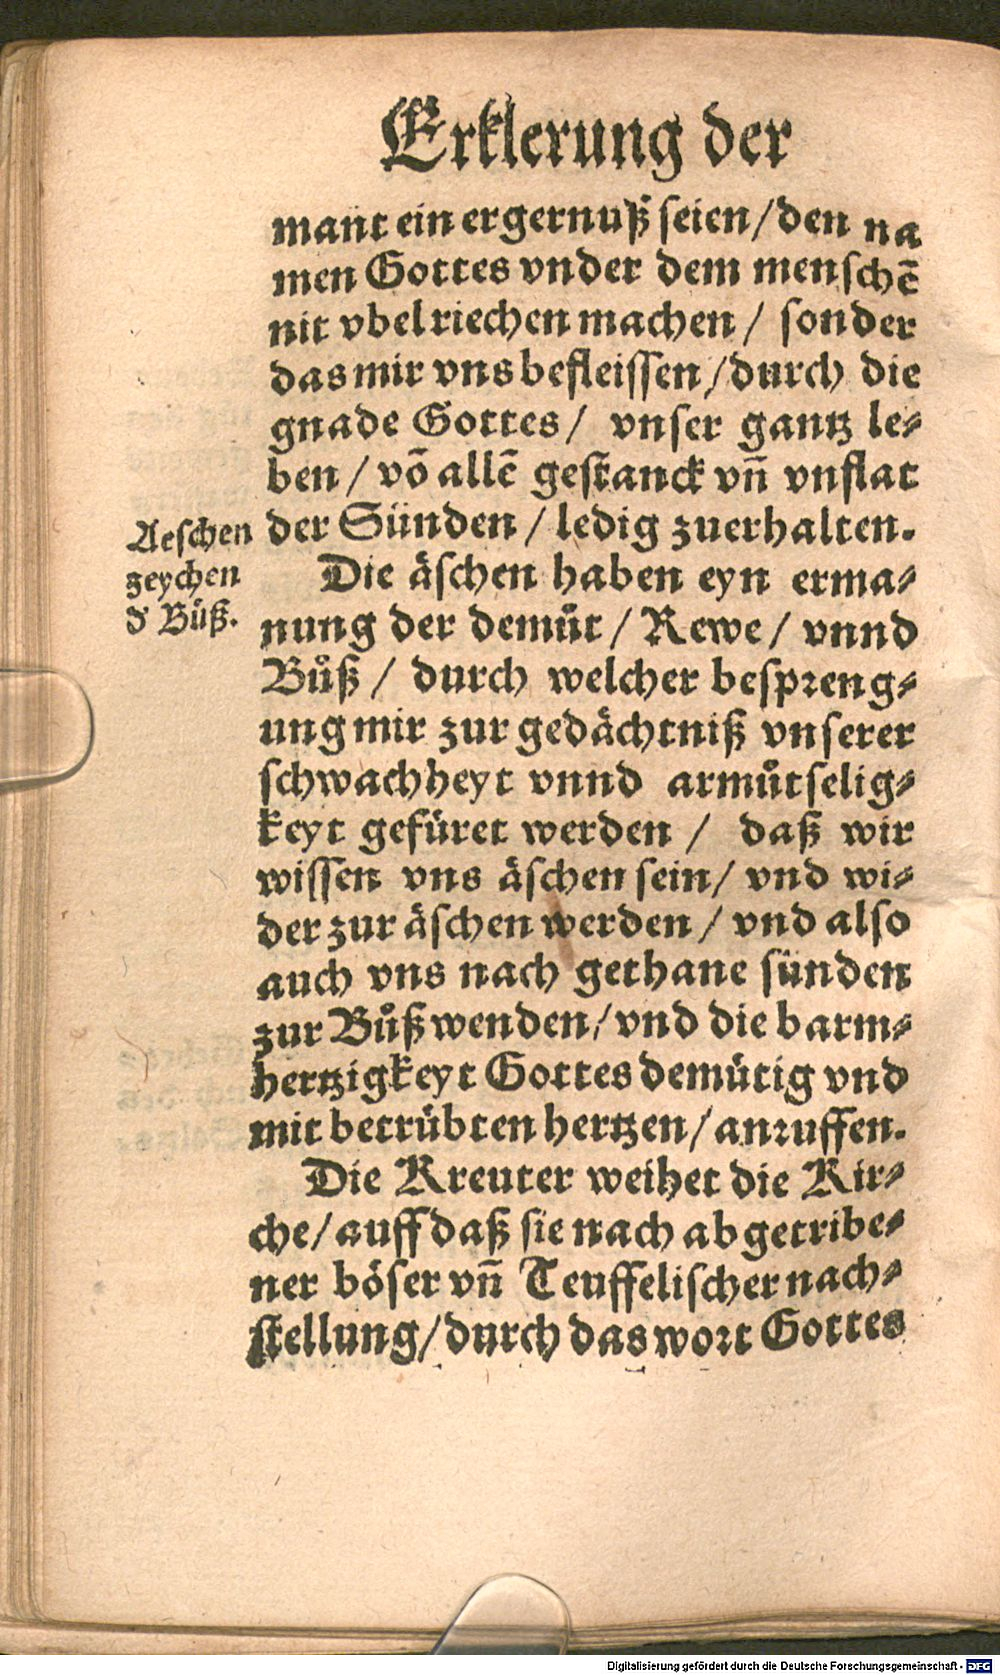 Erklerung der
mant ein ergernuß seien/den na
men Gottes vnder dem menschē
nit vbel riechen machen/ sonder
das mir vns befleissen/durch die
gnade Gottes/ vnser gantz le⸗
ben/vō allē gestanck vñ vnflat
der Sünden/ledig zuerhalten.
Aeschen
zeychen
d' Bůß.
Die äschen haben eyn erma⸗
nung der demůt/Rewe/ vnnd
Bůß/ durch welcher bespreng⸗
ung mir zur gedächtniß vnserer
schwachheyt vnnd armůtselig⸗
keyt gefüret werden/ daß wir
wissen vns äschen sein/ vnd wi⸗
der zur äschen werden/vnd also
auch vns nach gethane sünden
zur Bůß wenden/vnd die barm⸗
hertzigkeyt Gottes demütig vnd
mit betrübten hertzen/anruffen.
Die Kreuter weihet die Kir⸗
che/auff daß sie nach abgetribe⸗
ner böser vñ Teuffelischer nach⸗
stellung/durch das wort Gottes
Digitalisierung gefördert durch die Deutsche Forschungsgemeinschaft - DFG